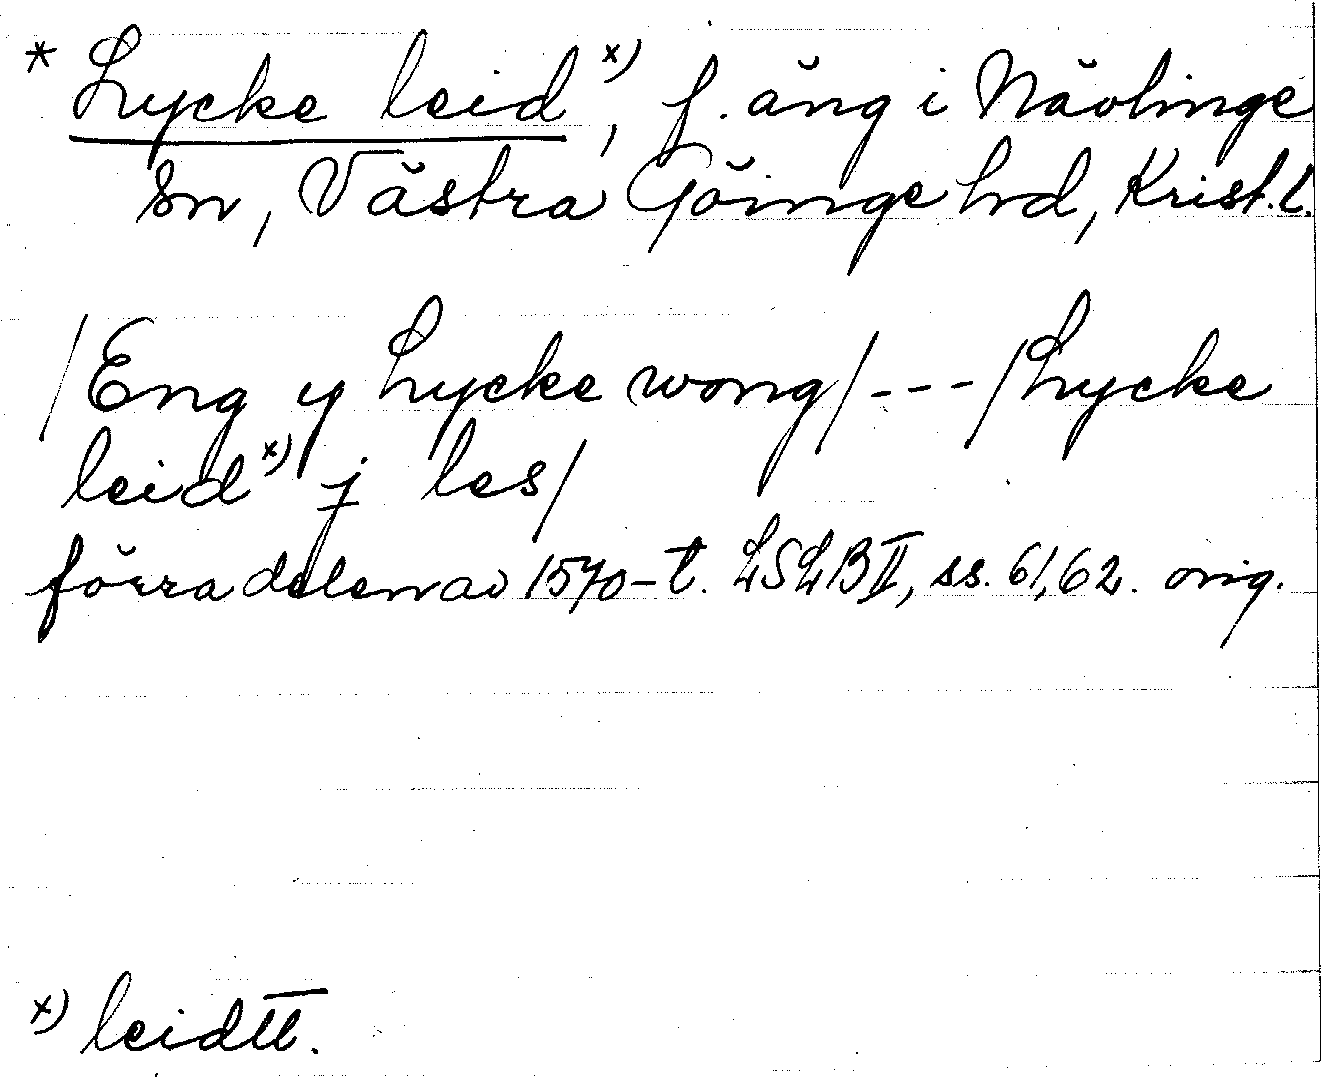 * Lycke leid x), f. äng i Nävlinge
sn, Västra Göinge hd, Krist. l.
/Eng y Lycke wong/ --- /Lycke
leid x) j les/
förra delen av 1570-t. LSLB II, ss. 61, 62. orig.
x) leidtt.